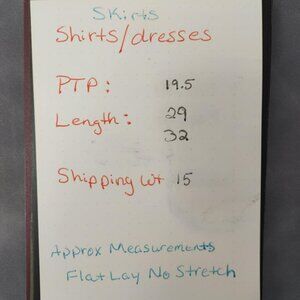 Skirts
Shirts/dresses
PTP: 19.5
Length: 29
32
Shipping wt 15
Approx Measurements
Flat Lay No Stretch